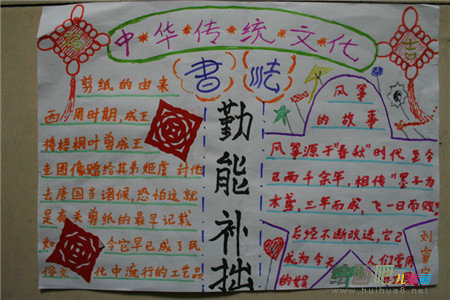 中华传统文化
书法
剪纸的由来
西周时期,成王
将梧桐叶剪成玉
圭图像赠给其弟姬虞 封他
去唐国当诸侯,恐怕这就
是有关剪纸的最早记载
如今它早已成了民
俗文化中流行的工艺品
勤能补拙
风筝
的故事
风筝源于"春秋"时代 至今
已两千余年,相传"墨子为
木鸢,三年而成,飞一日而败"
后经不断改进,它已
成为今天人们常用
的娱